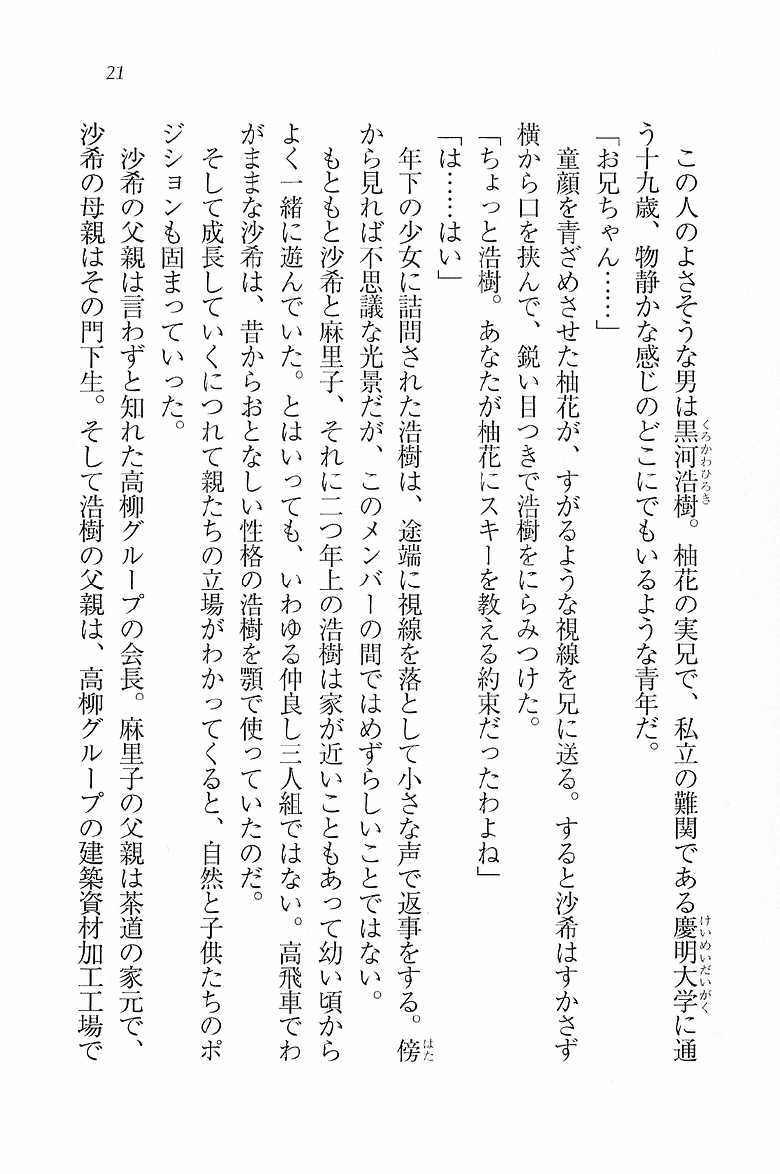 21
この人のよさそうな男は黒河浩樹。柚花の実兄で、私立の難関である慶明大学に通
くろかわひろき
けいめいだいがく
う十九歳、物静かな感じのどこにでもいるような青年だ。
「お兄ちゃん……」
童顔を青ざめさせた柚花が、すがるような視線を兄に送る。すると沙希はすかさず
横から口を挟んで、鋭い目つきで浩樹をにらみつけた。
「ちょっと浩樹。あなたが柚花にスキーを教える約束だったわよね」
「は……はい」
年下の少女に詰問された浩樹は、途端に視線を落として小さな声で返事をする。傍
はた
から見れば不思議な光景だが、このメンバーの間ではめずらしいことではない。
もともと沙希と麻里子、それに二つ年上の浩樹は家が近いこともあって幼い頃から
よく一緒に遊んでいた。とはいっても、いわゆる仲良し三人組ではない。高飛車でわ
がままな沙希は、昔からおとなしい性格の浩樹を顎で使っていたのだ。
そして成長していくにつれて親たちの立場がわかってくると、自然と子供たちのポ
ジションも固まっていった。
沙希の父親は言わずと知れた高柳グループの会長。麻里子の父親は茶道の家元で、
沙希の母親はその門下生。そして浩樹の父親は、高柳グループの建築資材加工工場で